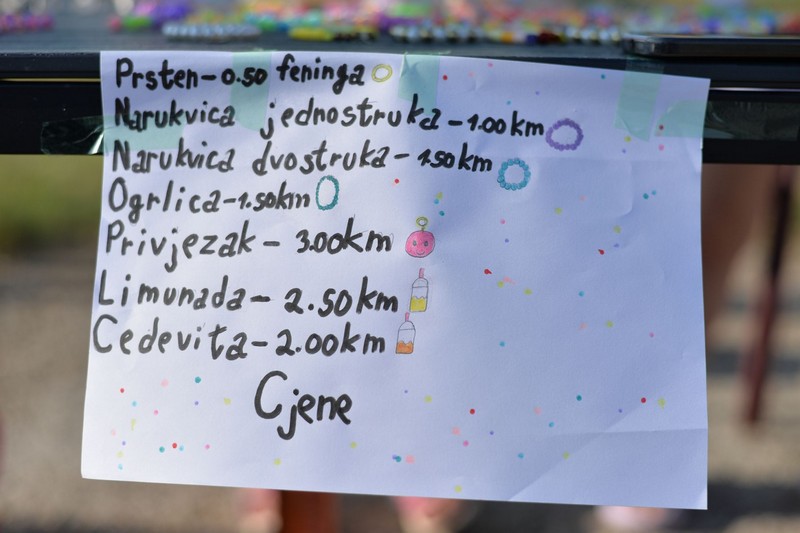 Prsten-0.50 feninga
Narukvica jednostruka-1.00km
Narukvica dvostruka-1.50km
Ogrlica-1.50km
Privjezak- 3.00km
Limunada- 2.50km
Cedevita-2.00km
Cjene